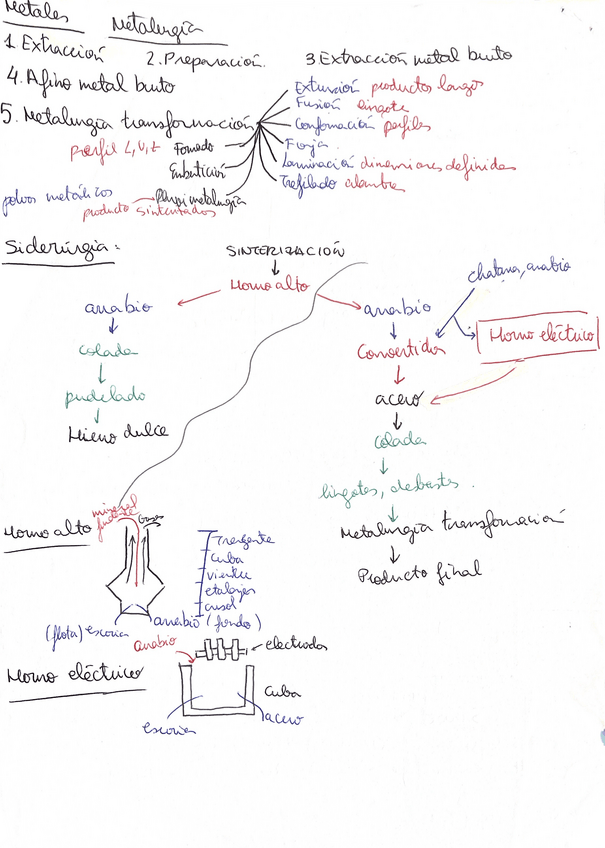 Metales
Metalurgia
1. Extracción
2. Preparación.
3 Extracción metal bruto
4. Afino metal bruto
5. Metalurgia transformación
Extursión productos largos
Fusión lingote
Conformación perfiles
Forja
Laminación dimensiones definidas
Trefilado alambre
perfil L, U, t
Embutición
polvos metálicos
producto sinterizados
Siderurgia:
SINTERIZACIÓN
Horno alto
arrabio
colada
pudelado
Hierro dulce
arrabio
chatarra, arrabio
Horno eléctrico
Convertidor
acero
colada
lingotes, desbastes.
Metalurgia transformación
Producto final
Horno alto
mineral
fundente
Gases
Tragante
cuba
vientre
etalajes
crisol
(flota) escoria
arrabio (fondo)
Horno eléctrico
arrabio
electrodos
cuba
acero
escoria